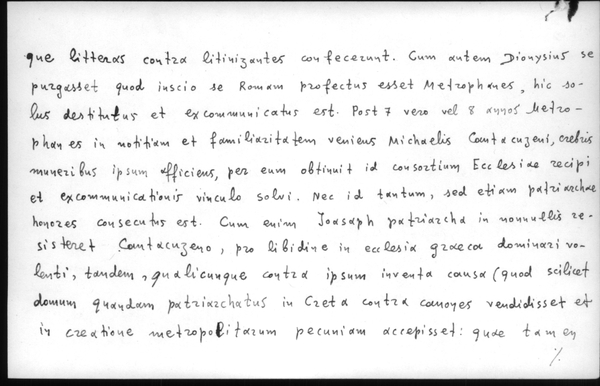 que litteras contra litinizantes confecerunt. Cum autem Dionysius se
purgasset quod inscio se Romam profectus esset Metrophanes, hic so-
lus destitutus et excommunicatus est. Post 7 vero vel 8 annos Metro-
phanes in notitiam et familiaritatem veniens Michaelis Cantacuzeni, crebris
muneribus ipsum afficiens, per eum obtinuit id consortium Ecclesiae recipi
et excommunicationis vinculo solvi. Nec id tantum, sed etiam patriarchae
honores consecutus est. Cum enim Joasaph patriarcha in nonnullis re-
sisteret Cantacuzeno, pro libidine in ecclesia graeca dominari vo-
lenti, tandem, qualicunque contra ipsum inventa causa (quod scilicet
domum quandam patriarchatus in Creta contra canones vendidisset et
in creatione metropolitarum pecuniam accepisset: quae tamen
./.